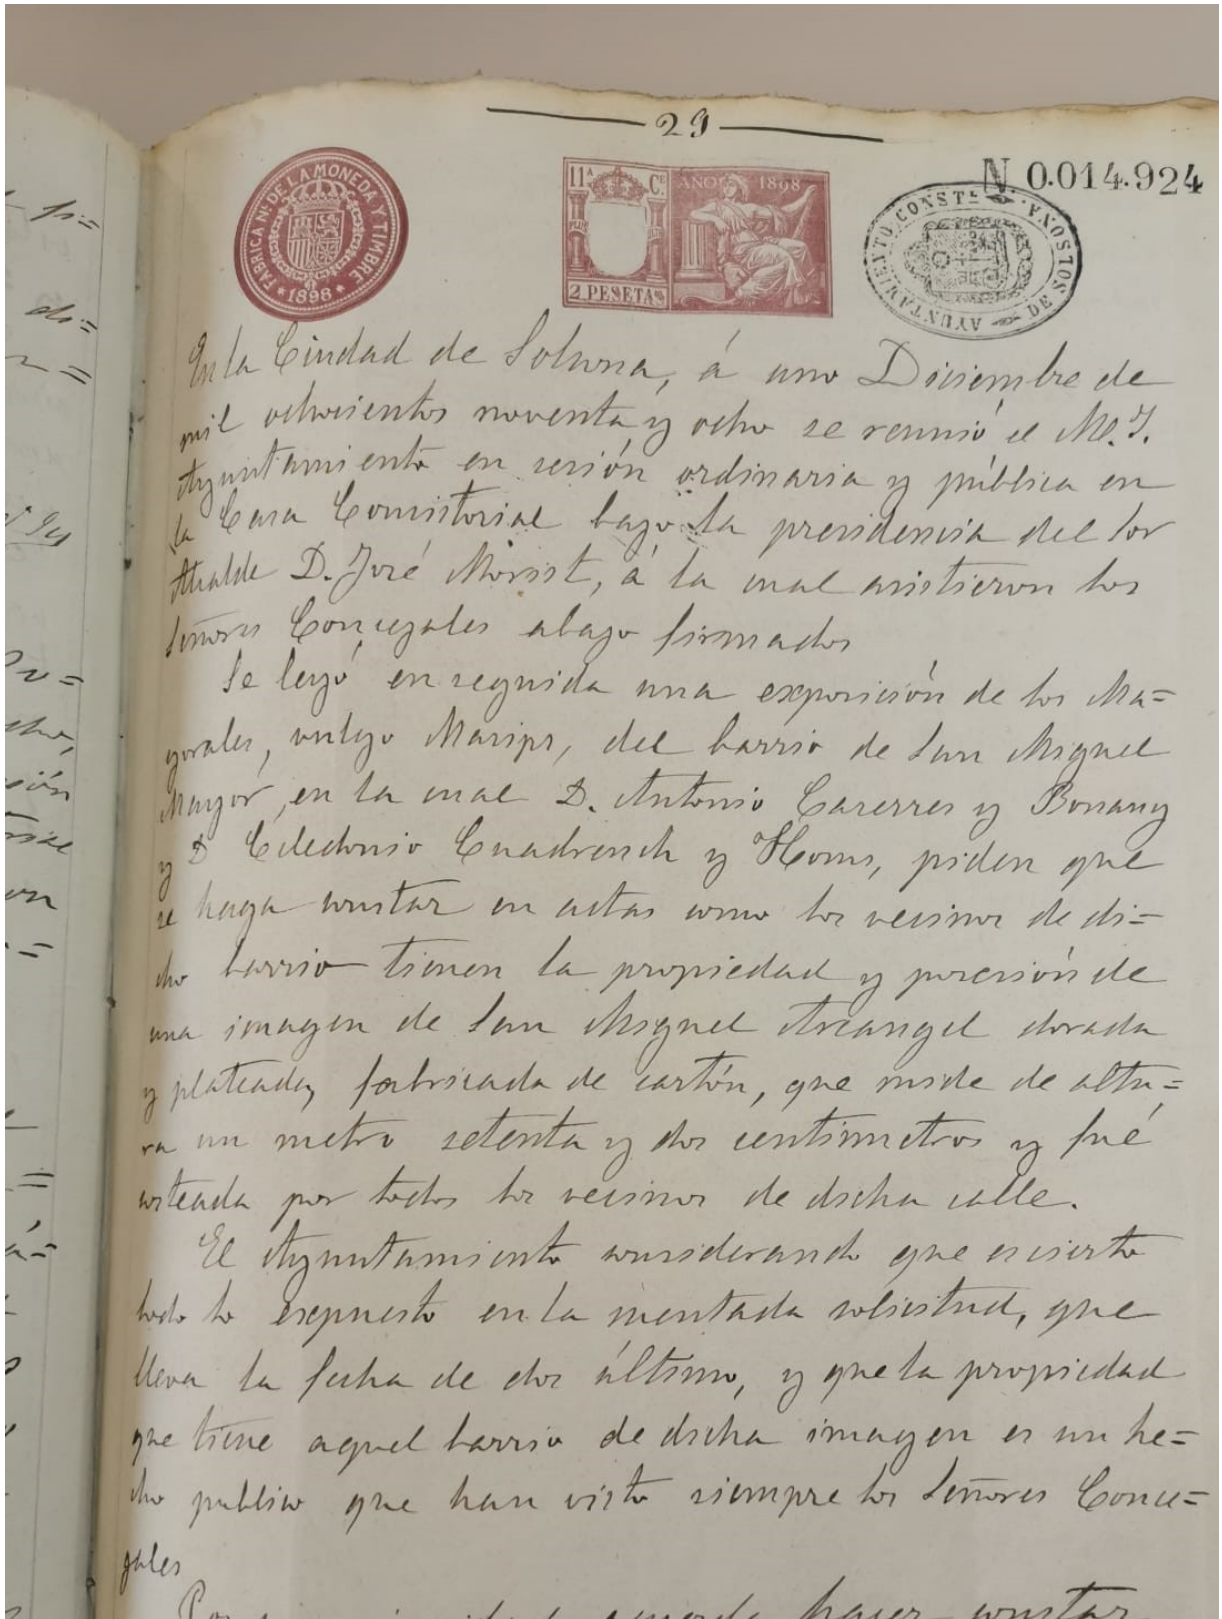 29
N 0.014.924
FABRICA Nl. DE LA MONEDA Y TIMBRE
* 1898 *
11A CE.
AÑO 1898
2 PESETAS
AYUNTAMIENTO CONSTL. DE SOLSONA
En la Ciudad de Solsona, á uno Diciembre de
mil ochocientos noventa y ocho se reunió el M. I.
Ayuntamiento en sesión ordinaria y pública en
la Casa Consistorial bajo la presidencia del Sor
Alcalde D. José Morist, á la cual asistieron los
Señores Concejales abajo firmados
Se leyó en seguida una exposición de los Ma=
yorales, vulgo Marips, del barrio de San Miguel
Mayor, en la cual D. Antonio Caserres y Bonany
y D Celedonio Cuadrench y Homs, piden que
se haga constar en actas como los vecinos de di=
cho barrio tienen la propiedad y posesión de
una imagen de San Miguel Arcangel dorada
y plateada, fabricada de cartón, que mide de altu=
ra un metro setenta y dos centimetros y fué
costeada por todos los vecinos de dicha calle.
El Ayuntamiento considerando que es cierto
todo lo expuesto en la mentada solicitud, que
lleva la fecha de dos último, y que la propiedad
que tiene aquel barrio de dicha imagen es un he=
cho publico que han visto siempre los Señores Conce=
jales
acuerda hacer constar